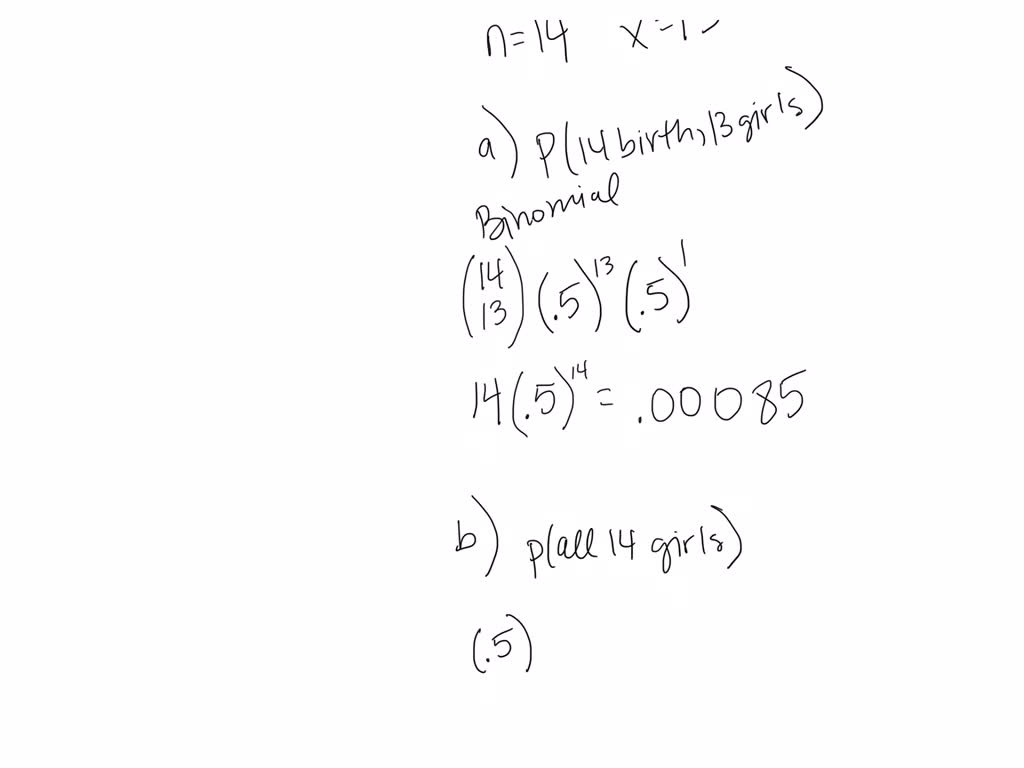 n=14 x=13
a) P(14 birth, 13 girls)
Binomial
(14 13) (.5)^13 (.5)^1
14(.5)^14 = .00085
b) p(all 14 girls)
(.5)